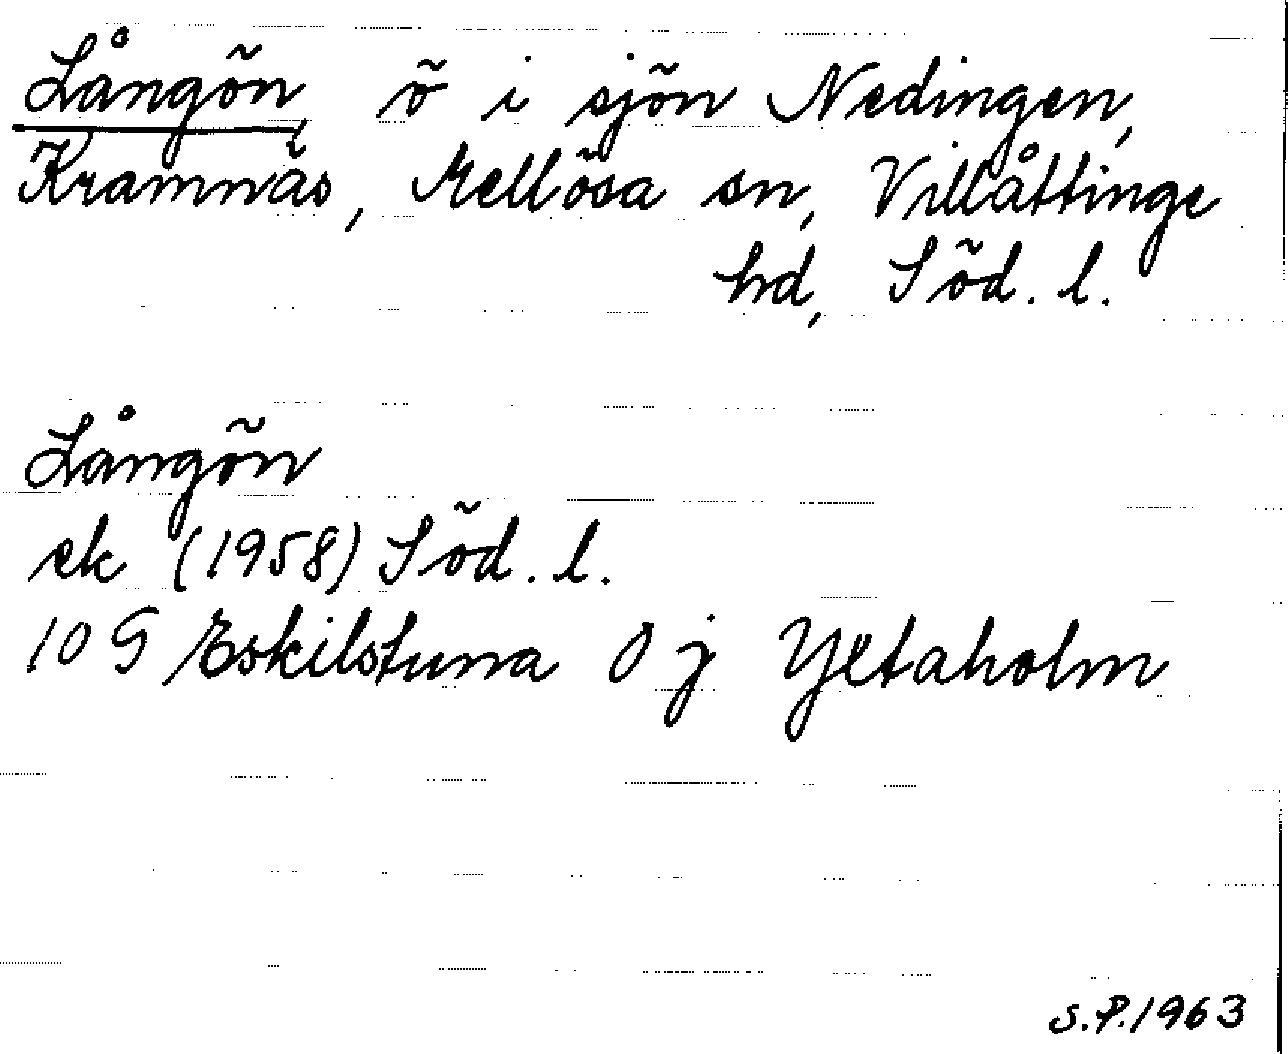 Långön, ö i sjön Nedingen,
Kramnäs, Mellösa sn, Villåttinge
hd, Söd. l.
Långön
ek (1958) Söd. l.
10 G Eskilstuna 0 j Yxtaholm
S.P. 1963